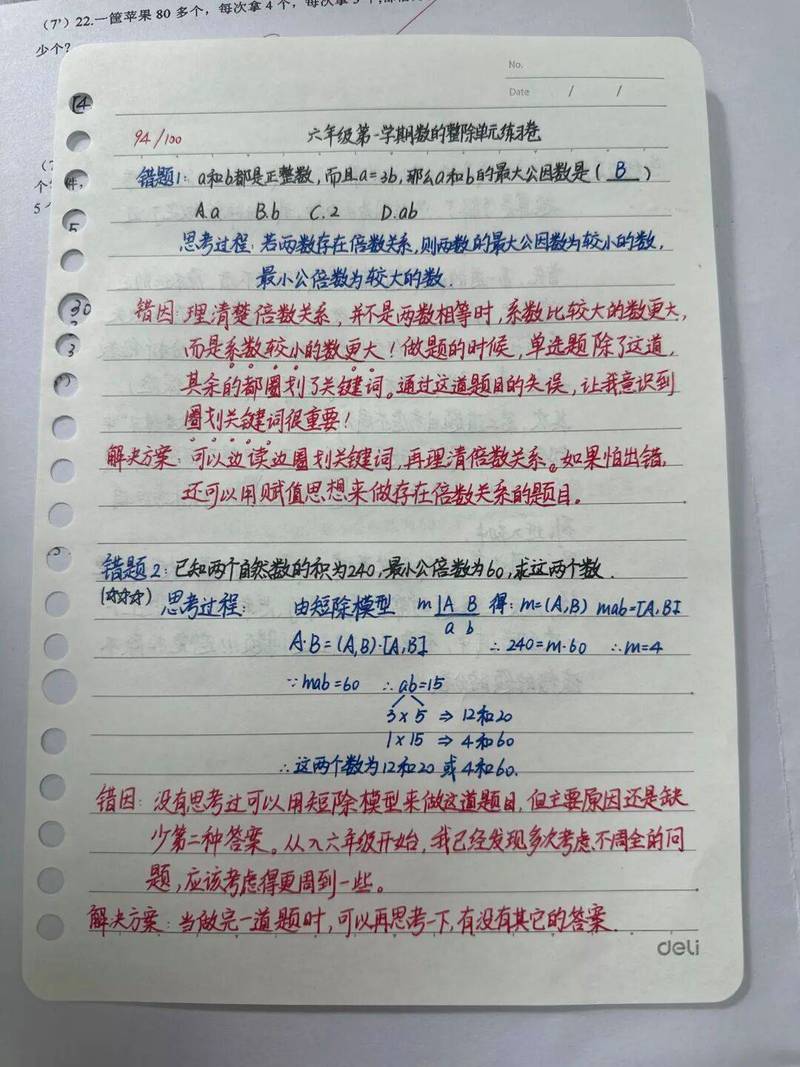 (7') 22.一筐苹果 80 多个，每次拿 4 个，每次拿
少个？
No.
Date / /
94/100 六年级第一学期数的整除单元练习卷
错题1: a和b都是正整数,而且a=3b,那么a和b的最大公因数是( B )
A.a B.b C.2 D.ab
思考过程:若两数存在倍数关系,则两数的最大公因数为较小的数,
最小公倍数为较大的数.
错因:理清楚倍数关系,并不是两数相等时,系数比较大的数更大,
而是系数较小的数更大!做题的时候,单选题除了这道,
其余的都圈划了关键词。通过这道题目的失误,让我意识到
圈划关键词很重要!
解决方案:可以边读边圈划关键词,再理清倍数关系。如果怕出错,
还可以用赋值思想来做存在倍数关系的题目。
错题2:已知两个自然数的积为240,最小公倍数为60,求这两个数.
(☆☆☆) 思考过程: 由短除模型 m|A B 得: m=(A,B) mab=[A,B]
a b
A·B=(A,B)·[A,B] ∴240=m·60 ∴m=4
∵mab=60 ∴ab=15
3×5 ⇒12和20
1×15 ⇒4和60
∴这两个数为12和20或4和60.
错因:没有思考过可以用短除模型来做这道题目,但主要原因还是缺
少第二种答案。从入六年级开始,我已经发现多次考虑不周全的问
题,应该考虑得更周到一些。
解决方案:当做完一道题时,可以再思考一下,有没有其它的答案.
deli